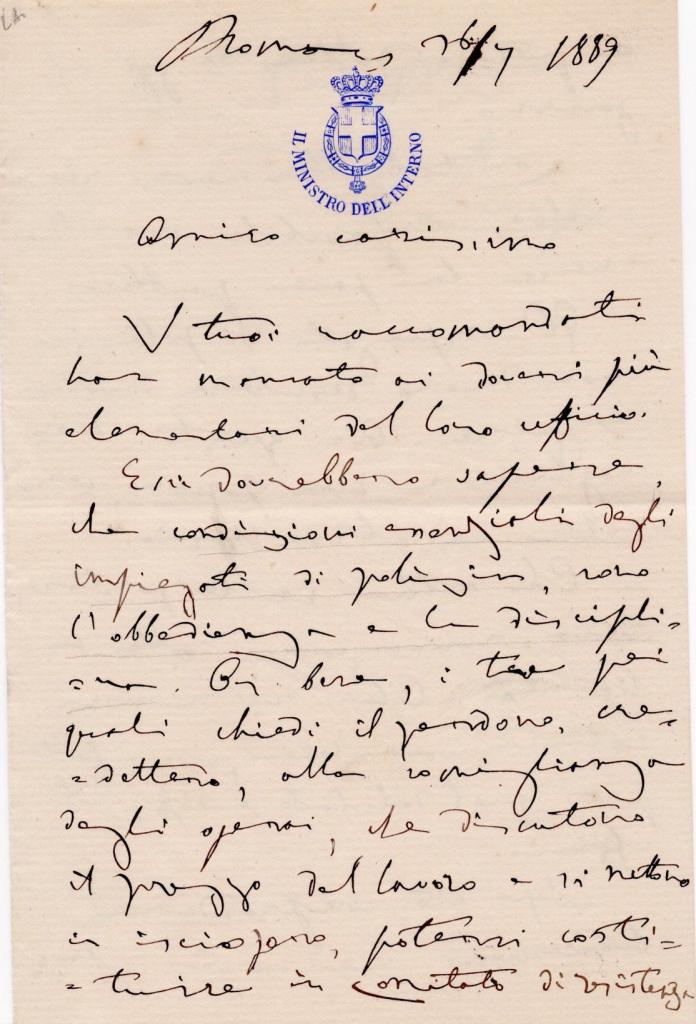 Roma, 26/7 1889
IL MINISTRO DELL'INTERNO
Amico carissimo
I tuoi raccomandati
han mancato ai doveri più
elementari del loro ufficio.
Essi dovrebbero sapere,
che condizioni essenziali degli
impiegati di polizia, sono
l'obbedienza e la discipli=
=na. Or bene, i tre pei
quali chiedi il perdono, cre=
=dettero, alla somiglianza
degli operai, che discutono
il prezzo del lavoro e si mettono
in isciopero, potersi costi=
=tuire in comitato di resistenza